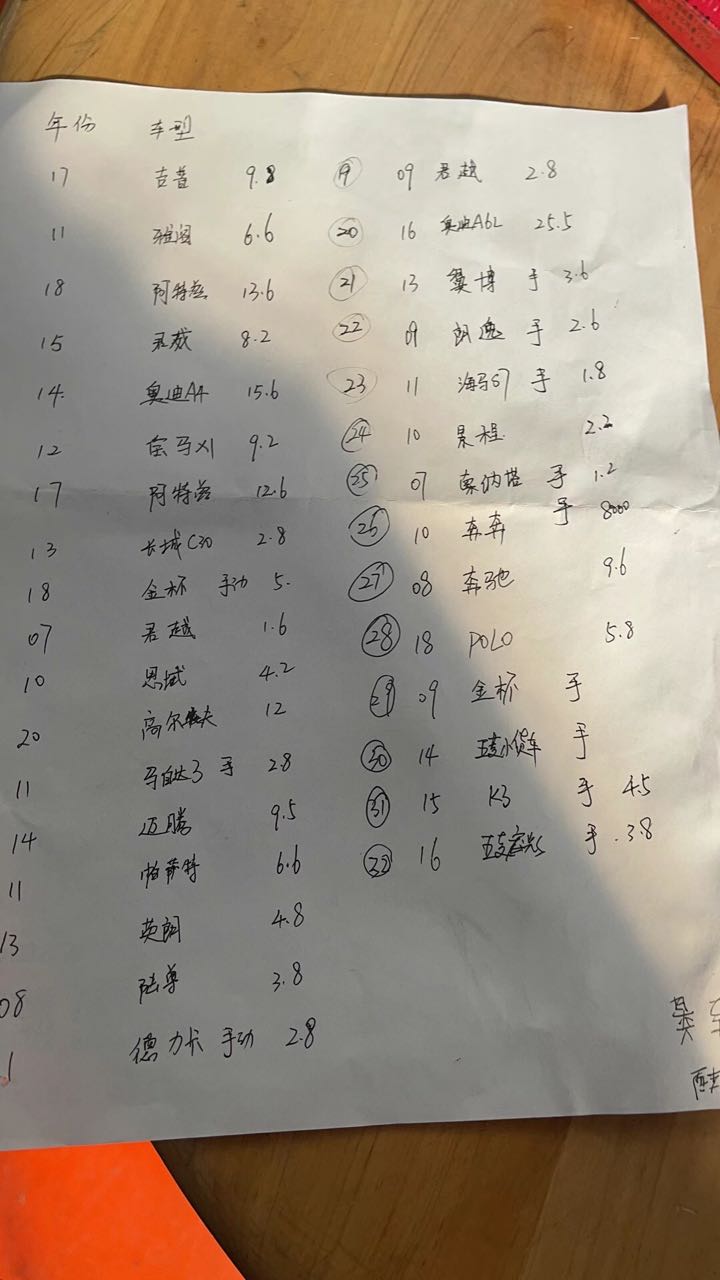 年份 车型
17 吉普 9.8
11 雅阁 6.6
18 阿特兹 13.6
15 君威 8.2
14. 奥迪A4 15.6
12 宝马X1 9.2
17 阿特兹 12.6
13 长城C30 2.8
18 金杯 手动 5.
07 君越 1.6
10 思域 4.2
20 高尔夫 12
11 马自达3 手 2.8
14 迈腾 9.5
11 帕萨特 6.6
13 英朗 4.8
08 陆尊 3.8
1 德力卡 手动 2.8
⑲ 09 君越 2.8
⑳ 16 奥迪A6L 25.5
㉑ 13 翼博 手 3.6
㉒ 09 朗逸 手 2.6
㉓ 11 海马S7 手 1.8
㉔ 10 景程. 2.2
㉕ 07 索纳塔 手 1.2
㉖ 10 奔奔 手 8000
㉗ 08 奔驰 9.6
㉘ 18 POLO 5.8
㉙ 09 金杯 手
㉚ 14 五菱小货车 手
㉛ 15 K3 手 4.5
㉜ 16 五菱宏光S 手 .3.8